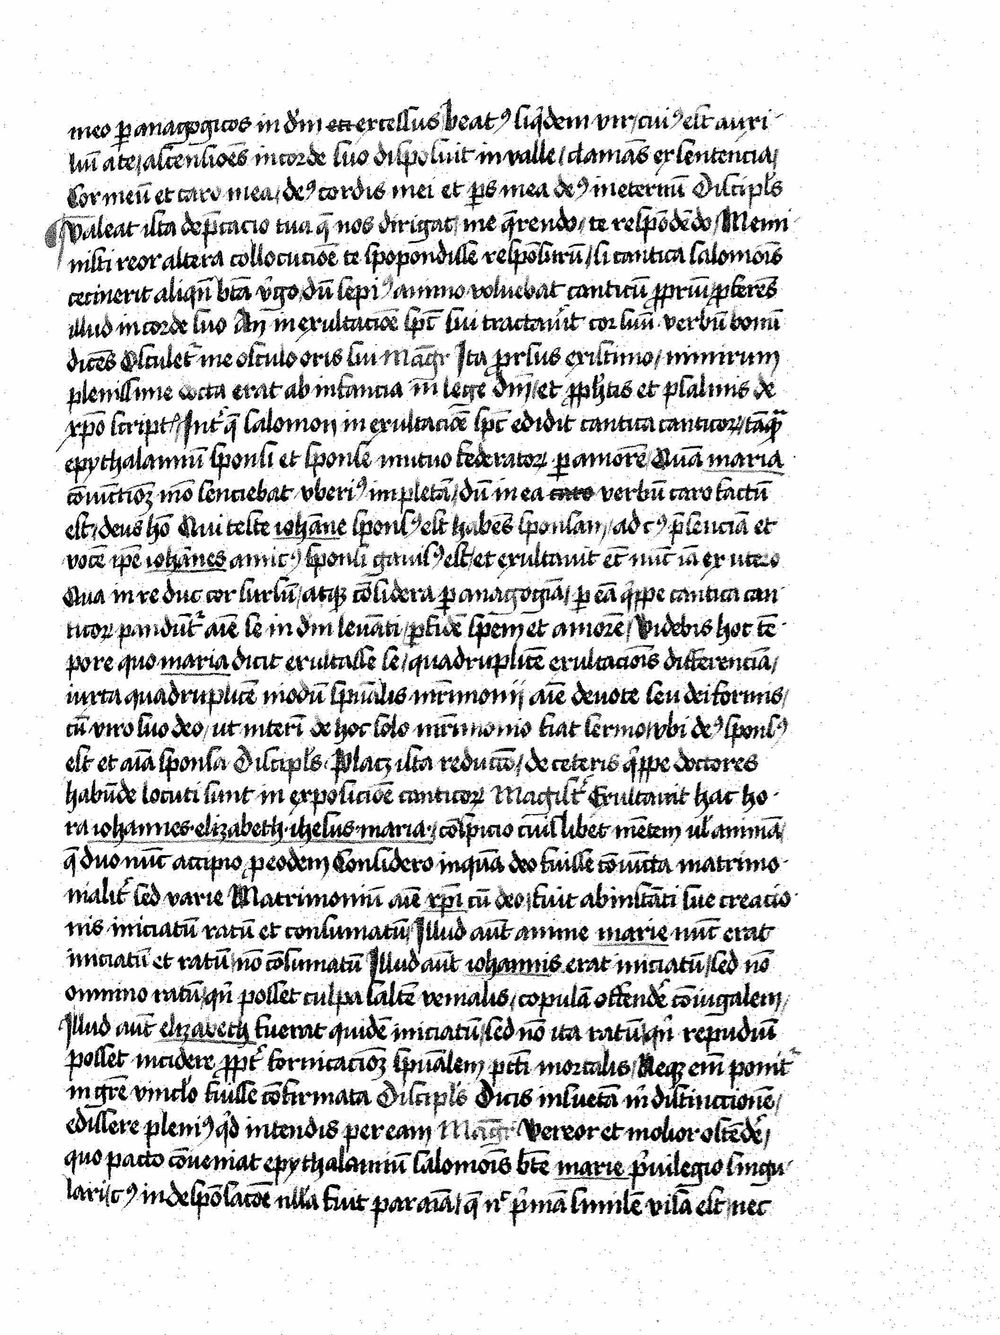 meo p anagogicos in dn̄m excessus Beatꝰ siq̇dem vir / cuiꝰ est auxi-
liū a te / ascensiões in corde suo disposuit in valle / clamās ex sentencia /
Cor meū et caro mea / deꝰ cordis mei et ps mea deꝰ in eternū Discipl̄s
Valeat ista dep̄cacio tua q̄ nos dirigat / me q̄rendo / te respōdēdo / Memi-
nisti reor altera collocucioē te spopondisse respōsurū / si cantica salomōis
cecinerit aliqn̄ bt̄a v̄go / dū sepiꝰ animo voluebat canticū ꝓpriū / ꝓferēs
illud in corde suo An̄ in exultacioē sp̄c sui tractau̓it cor suū verbū bonū
dicēs Osculet᷑ me osculo oris sui Maḡr Ita prorsus existimo / nimirum
plenissime docta erat ab infancia in lege dn̄i / et ꝓph̄tis et psalmis de
xp̄o script᷑ / Int᷑ q̄ salomon in exultacioē sp̄c edidit cantica canticoꝝ / tāq̄
epythalamiū sponsi et sponse mutuo federatoꝝ p amorē / Quā maria
cōiūctioꝫ in se senciebat vberiꝰ impletā / dū in ea verbū caro factū
est / deus hō Qui teste iohāne sponsꝰ est habēs sponsam / ad cꝰ p̄senciā et
vocē ip̄e iohānes amicꝰ sponsi gauisꝰ est / et exultauit et nūc iā ex utero
Qua in re duc cor sursū / atqꝫ cōsidera p anagogiā / p eā q̇ppe cantica can-
ticoꝝ pandūt᷑ aīe se in dn̄m leuāti / p fidē spem et amorē / Videbis hoc tē-
pore quo maria dicit exultasse se / quadruplicē exultacionis differenciā /
iuxta quadruplicē modū spūalis mr̄imonij aīe deuote seu deiformis /
cū viro suo deo / ut interī de hoc solo mr̄imonio fiat sermo / vbi deꝰ sponsꝰ
est et aīa sponsa Discipl̄s Placꝫ ista reductō / de ceteris q̇ppe doctores
habūde locuti sunt in exposicioē canticoꝝ Magist᷑ Exultauit hac ho-
ra iohannes · elizabeth · ihesus · maria · / cōspicio cuiuslibet mētem ul̄ animā /
q̄ duo nūc accipio p eodem Considero inquā deo fuisse cōiūcta matrimo-
nialit᷑ sed varie Matrimoniū aīe xp̄i cū deo / fuit ab instāti sue creacio-
nis iniciatū ratū et consumatū / Illud aūt anime marie nūc erat
iniciatū et ratū / nō cōsumatū Illud aūt iohannis erat iniciatū / sed nō
omnino ratū / qn̄ posset culpa saltē venialis / copulā offendē coniugalem /
Illud aūt elizabeth fuerat quidē iniciatū / sed nō ita ratū / qn̄ repudiū
posset incidere ꝓpt᷑ fornicacioꝫ spūalem pcti mortalis / Neqꝫ em̄ ponit᷑
in gr̄e vinclo fuisse cōfirmata Discipl̄s Dicis insuetā m̄ distinctionē /
edissere pleniꝰ qd̓ intendis per eam Maḡr Vereor et molior ostēdē /
quo pacto cōueniat epythalamiū salomōis bt̄e marie p̓uilegio singu-
lari / cꝰ in despōsacōe nulla fuit par aīa / q̄ n᷑ p̓mā similē visā est / nec